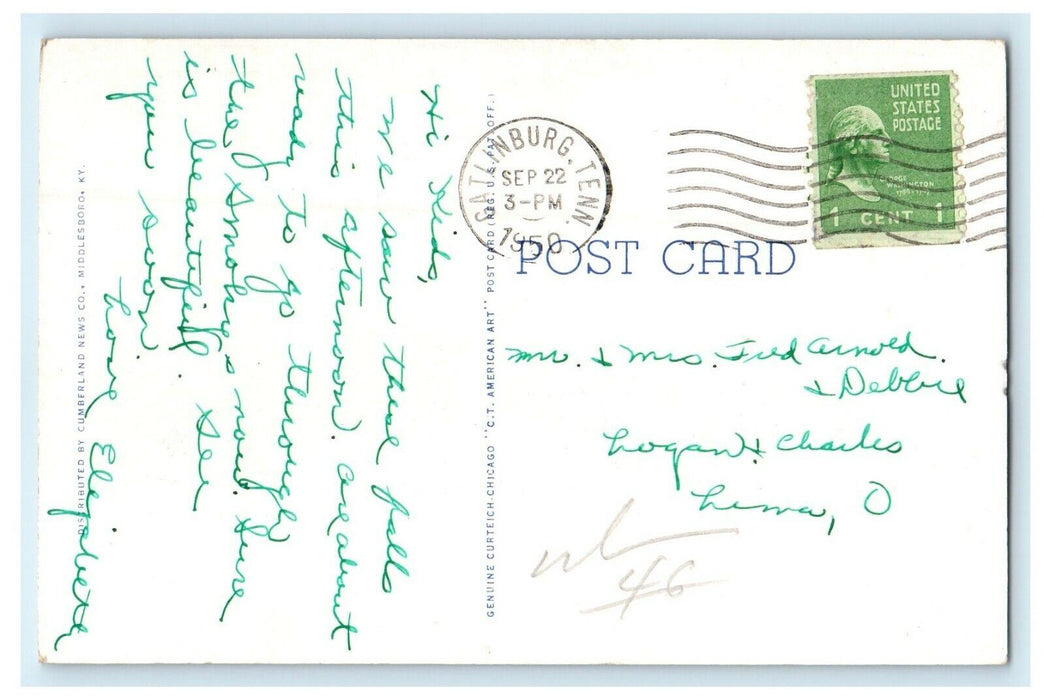 Hi Kids,
We saw these falls
this afternoon. are about
ready to go through
the Smokys now. Sure
is beautiful. See
you soon
Love Elizabeth
DISTRIBUTED BY CUMBERLAND NEWS CO., MIDDLESBORO, KY.
GENUINE CURTEICH-CHICAGO "C.T. AMERICAN ART" POST CARD (REG. U.S. PAT. OFF.)
GATLINBURG, TENN.
SEP 22
3-PM
1950
UNITED
STATES
POSTAGE
GEORGE
WASHINGTON
1 CENT 1
POST CARD
Mr. & Mrs Fred Arnold
& Debbie
Logan & Charles
Lima, O
46